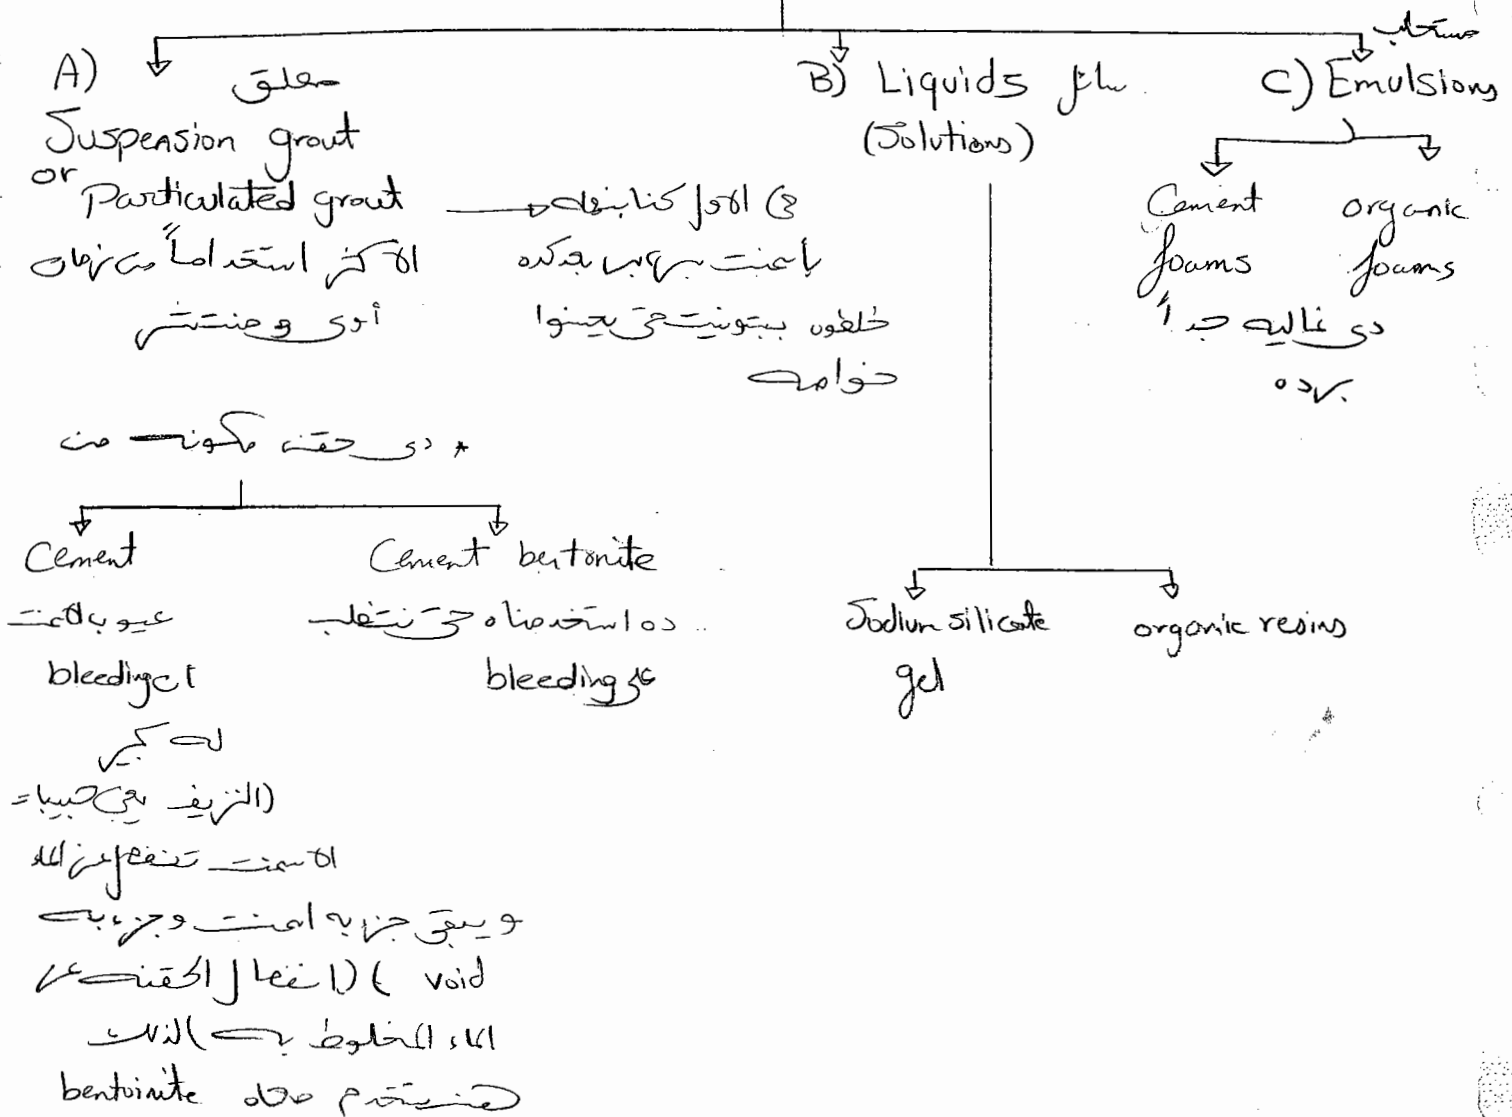 مستحلب
A) معلق
Suspension grout
or Particulated grout
الاكثر استخداماً من زمان
أوى ومنتشر
في الاول كنا بنعمله
باسمنت بعد كده
خلطوه ببنتونيت حتى يحسنوا
خواصه
* دى حقنه مكونه من
Cement
عيوب الاسمنت
ان bleeding
له كبير
(النزيف يعنى حبيبات
الاسمنت تنفصل عن الماء
و يبقى جزء به اسمنت وجزء به
void) (انفصال الحقنه عن
الماء المخلوط به) لذلك
هنستخدم معاه bentoinite
Cement bentonite
ده استخدمناه حتى نتغلب
على bleeding
B) Liquids سائل
(Solutions)
Sodium silicate
gel
organic resins
C) Emulsions
Cement
foams
organic
foams
دى غاليه جداً
برده